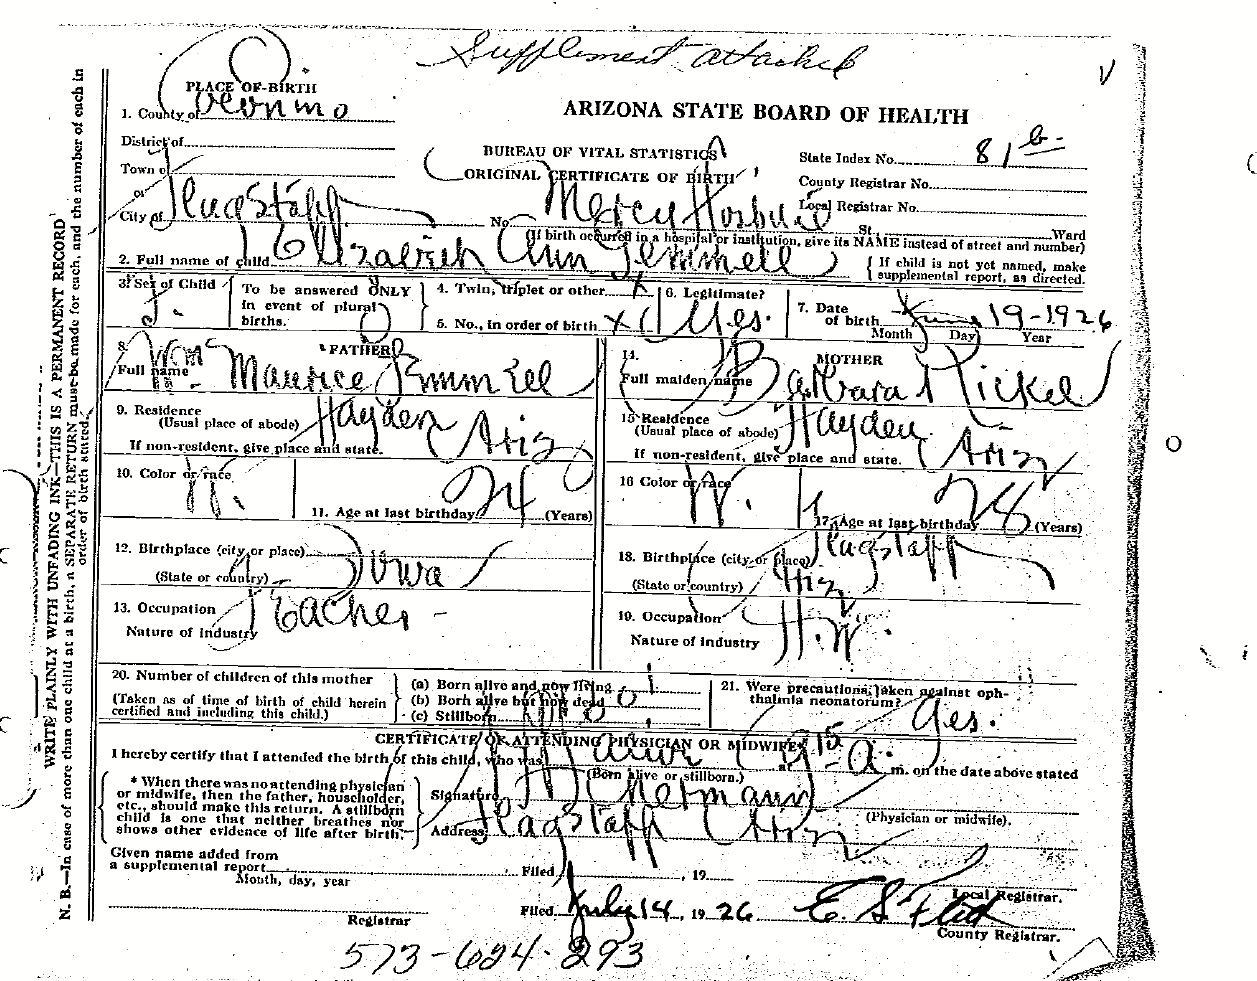 Supplement attached
V
PLACE OF BIRTH
1. County of Coconino
ARIZONA STATE BOARD OF HEALTH
District of
BUREAU OF VITAL STATISTICS
State Index No. 81 b-
Town of
ORIGINAL CERTIFICATE OF BIRTH
County Registrar No.
or
City of Flagstaff
No. Mercy Hospital St. Ward
Local Registrar No.
(If birth occurred in a hospital or institution, give its NAME instead of street and number)
2. Full name of child Elizabeth Ann Gemmell
{ If child is not yet named, make supplemental report, as directed.
3. Sex of Child F.
To be answered ONLY in event of plural births.
4. Twin, triplet or other X
5. No., in order of birth X
6. Legitimate? Yes.
7. Date of birth June 19-1926
Month Day Year
8. FATHER
Full name Wm. Maurice Gemmell
14. MOTHER
Full maiden name Barbara Nickel
9. Residence (Usual place of abode) Hayden Ariz
If non-resident, give place and state.
15 Residence (Usual place of abode) Hayden. Ariz
If non-resident, give place and state.
10. Color or race W.
11. Age at last birthday 24 (Years)
16 Color or race W.
17. Age at last birthday 28 (Years)
12. Birthplace (city or place)
(State or country) Iowa
18. Birthplace (city or place) Flagstaff
(State or country) Ariz
13. Occupation Teacher -
Nature of Industry
19. Occupation H.W.
Nature of Industry
20. Number of children of this mother
(Taken as of time of birth of child herein certified and including this child.)
(a) Born alive and now living 1
(b) Born alive but now dead 0
(c) Stillborn 0
21. Were precautions taken against ophthalmia neonatorum? Yes.
CERTIFICATE OF ATTENDING PHYSICIAN OR MIDWIFE*
I hereby certify that I attended the birth of this child, who was alive 9 15 A. m. on the date above stated
(Born alive or stillborn.)
* When there was no attending physician
or midwife, then the father, householder,
etc., should make this return. A stillborn
child is one that neither breathes nor
shows other evidence of life after birth.
Signature
(Physician or midwife).
Address Flagstaff Ariz
Given name added from
a supplemental report
Month, day, year
Filed , 19
Local Registrar.
Registrar
Filed July 14, 1926
County Registrar.
573-624-293
WRITE PLAINLY WITH UNFADING INK—THIS IS A PERMANENT RECORD
N. B.—In case of more than one child at a birth, a SEPARATE RETURN must be made for each, and the number of each in
order of birth stated.